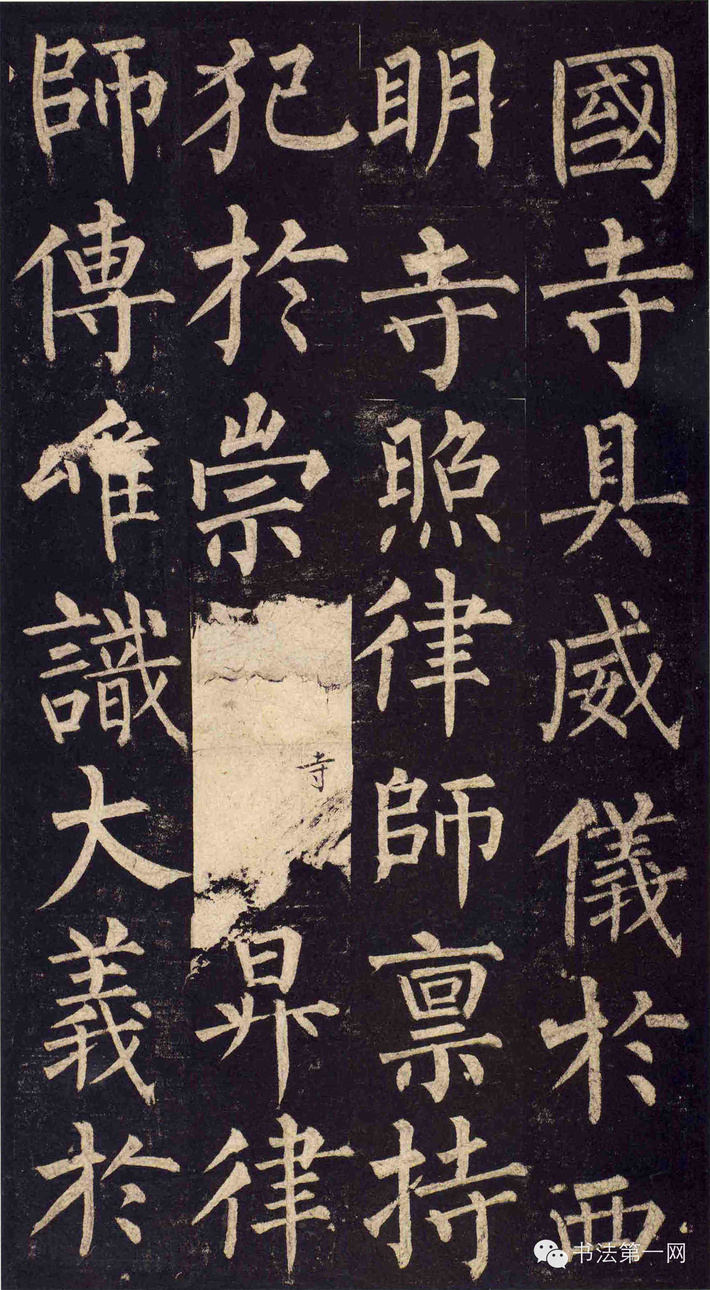 國寺具威儀於西
明寺照律師禀持
犯於崇寺昇律
師傳唯識大義於
书法第一网